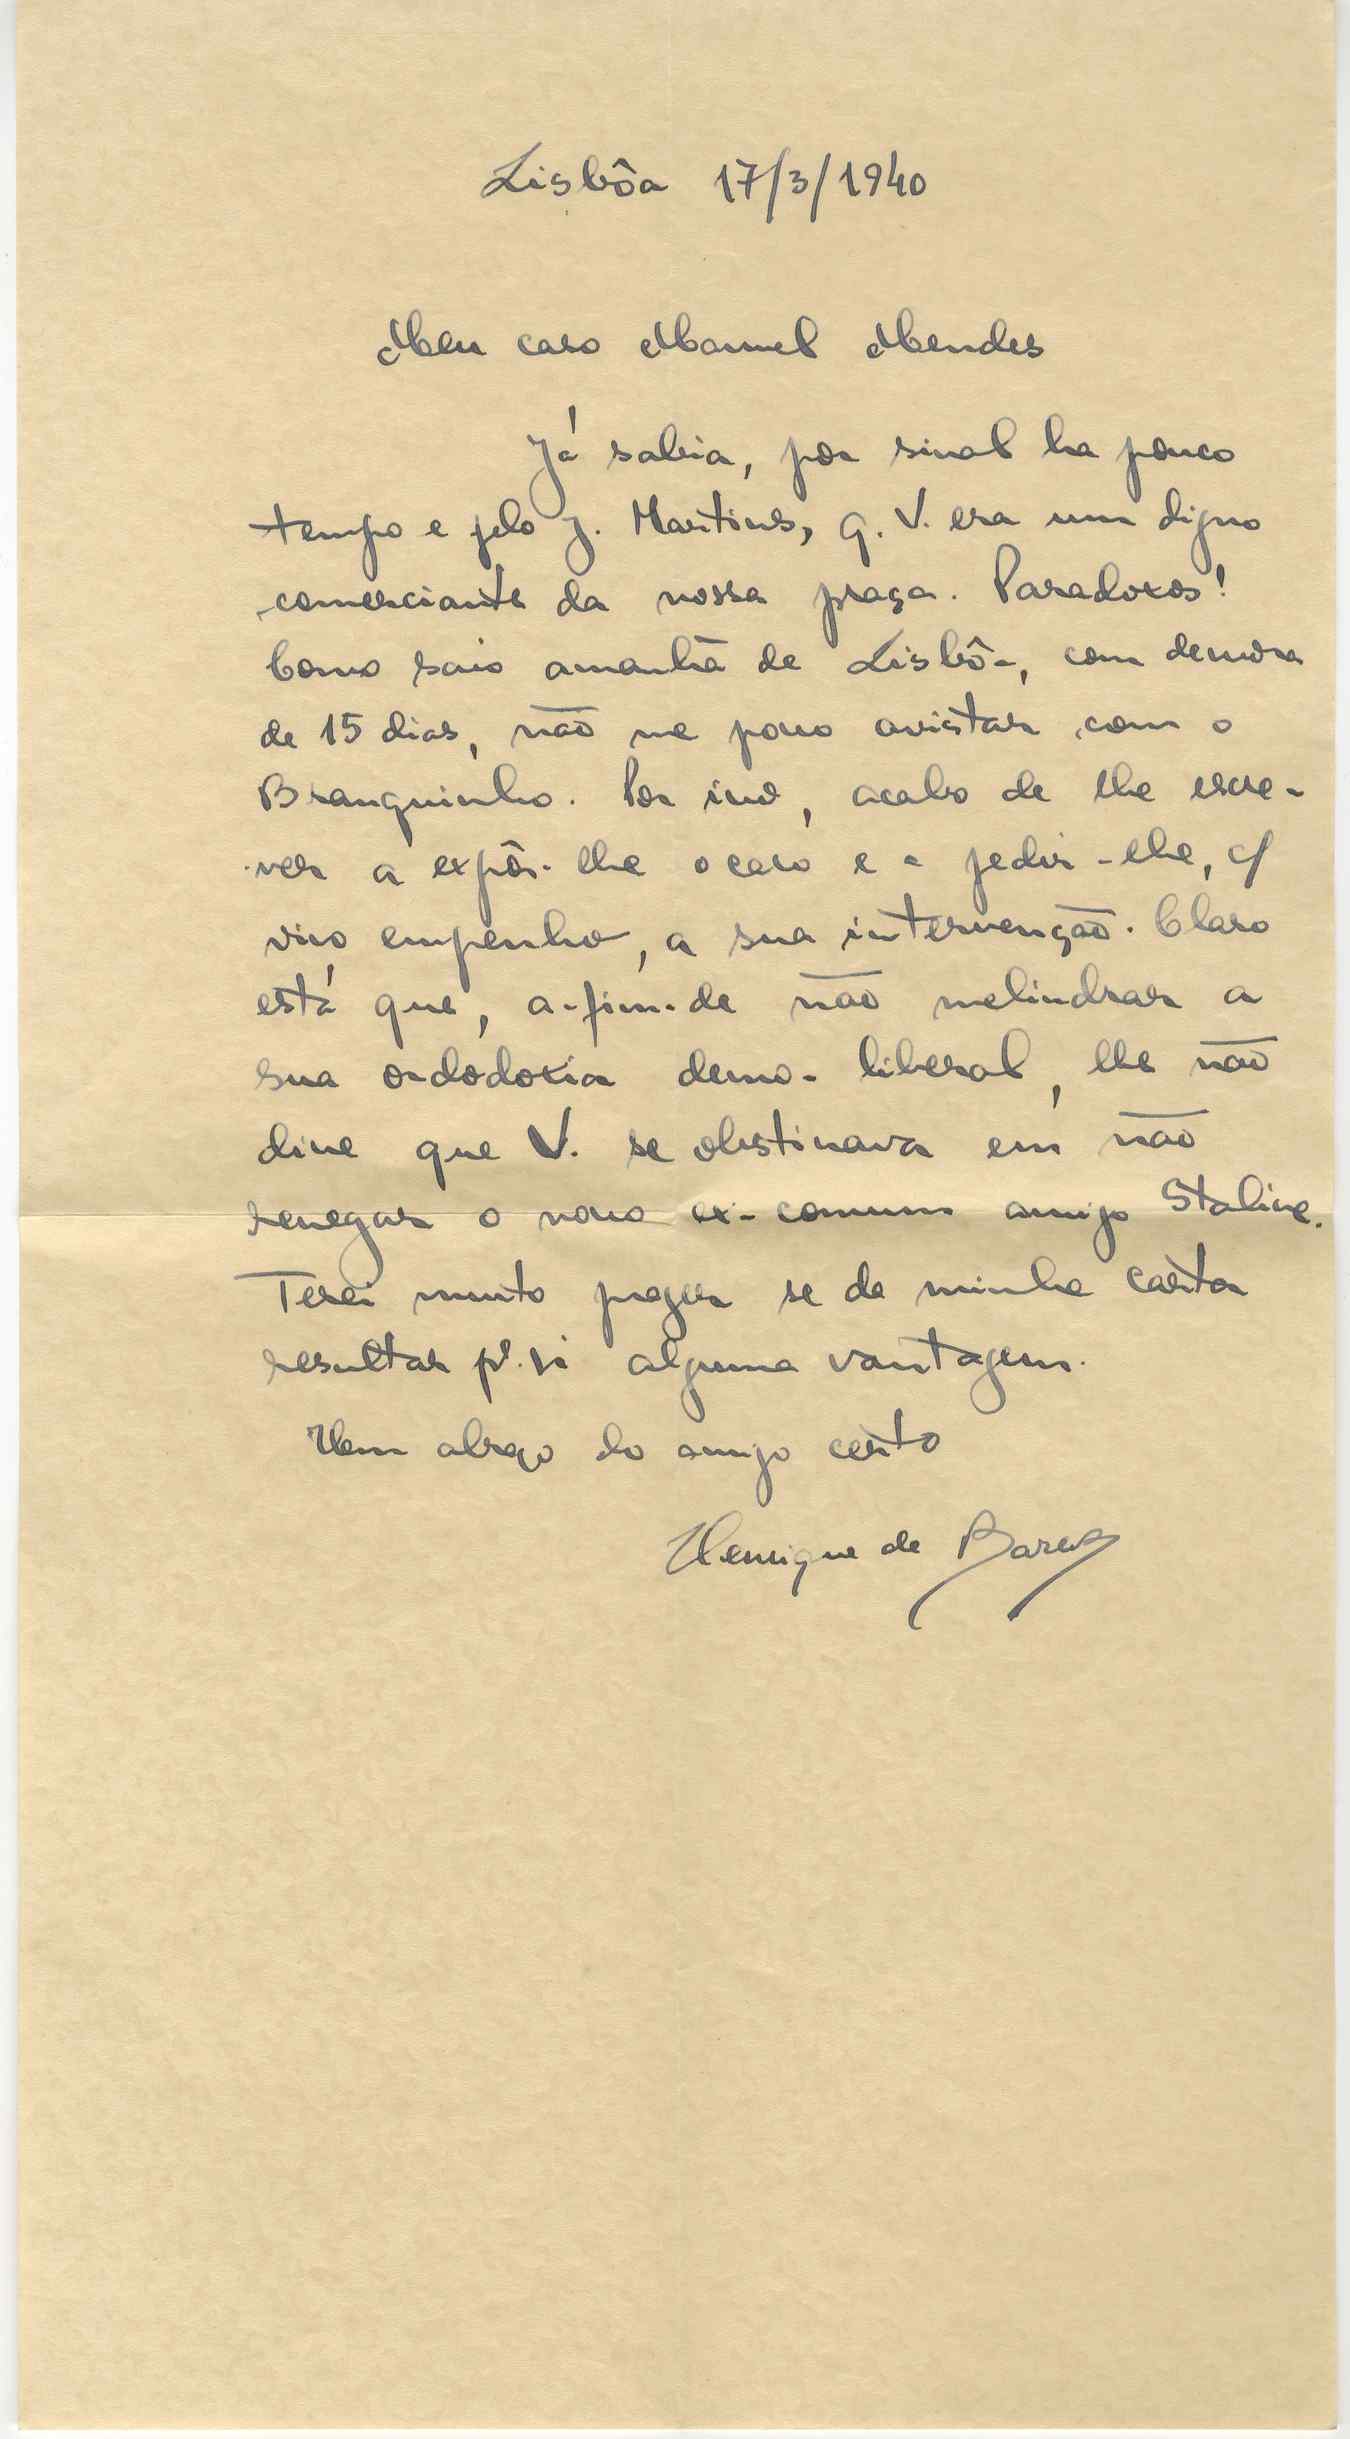 Lisbôa 17/3/1940
Meu caro Manuel Mendes
Já sabia, por sinal ha pouco
tempo e pelo J. Martins, q. V. era um digno
comerciante da nossa praça. Paradoxos!
Como saio amanhã de Lisbôa, com demora
de 15 dias, não me posso avistar com o
Branquinho. Por isso, acabo de lhe escre-
ver a expôr-lhe o caso e a pedir-lhe, c/
vivo empenho, a sua intervenção. Claro
está que, a-fim-de não melindrar a
sua ordodoxia demo-liberal, lhe não
disse que V. se obstinava em não
renegar o nosso ex-comum amigo Staline.
Terei muito prazer se da minha carta
resultar pª. si alguma vantagem.
Um abraço do amigo certo
Henrique de Barros